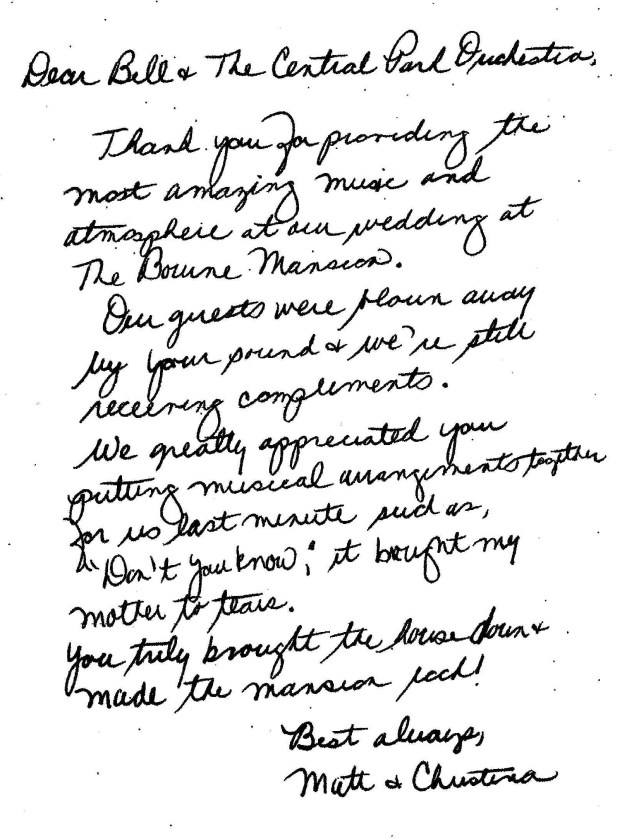 Dear Bill & The Central Park Orchestra,
Thank you for providing the
most amazing music and
atmosphere at our wedding at
The Bourne Mansion.
Our guests were blown away
by your sound & we're still
receiving compliments.
We greatly appreciated your
putting musical arrangements together
for us last minute such as,
"Don't You Know," it brought my
mother to tears.
You truly brought the house down &
made the mansion rock!
Best always,
Matt & Christina